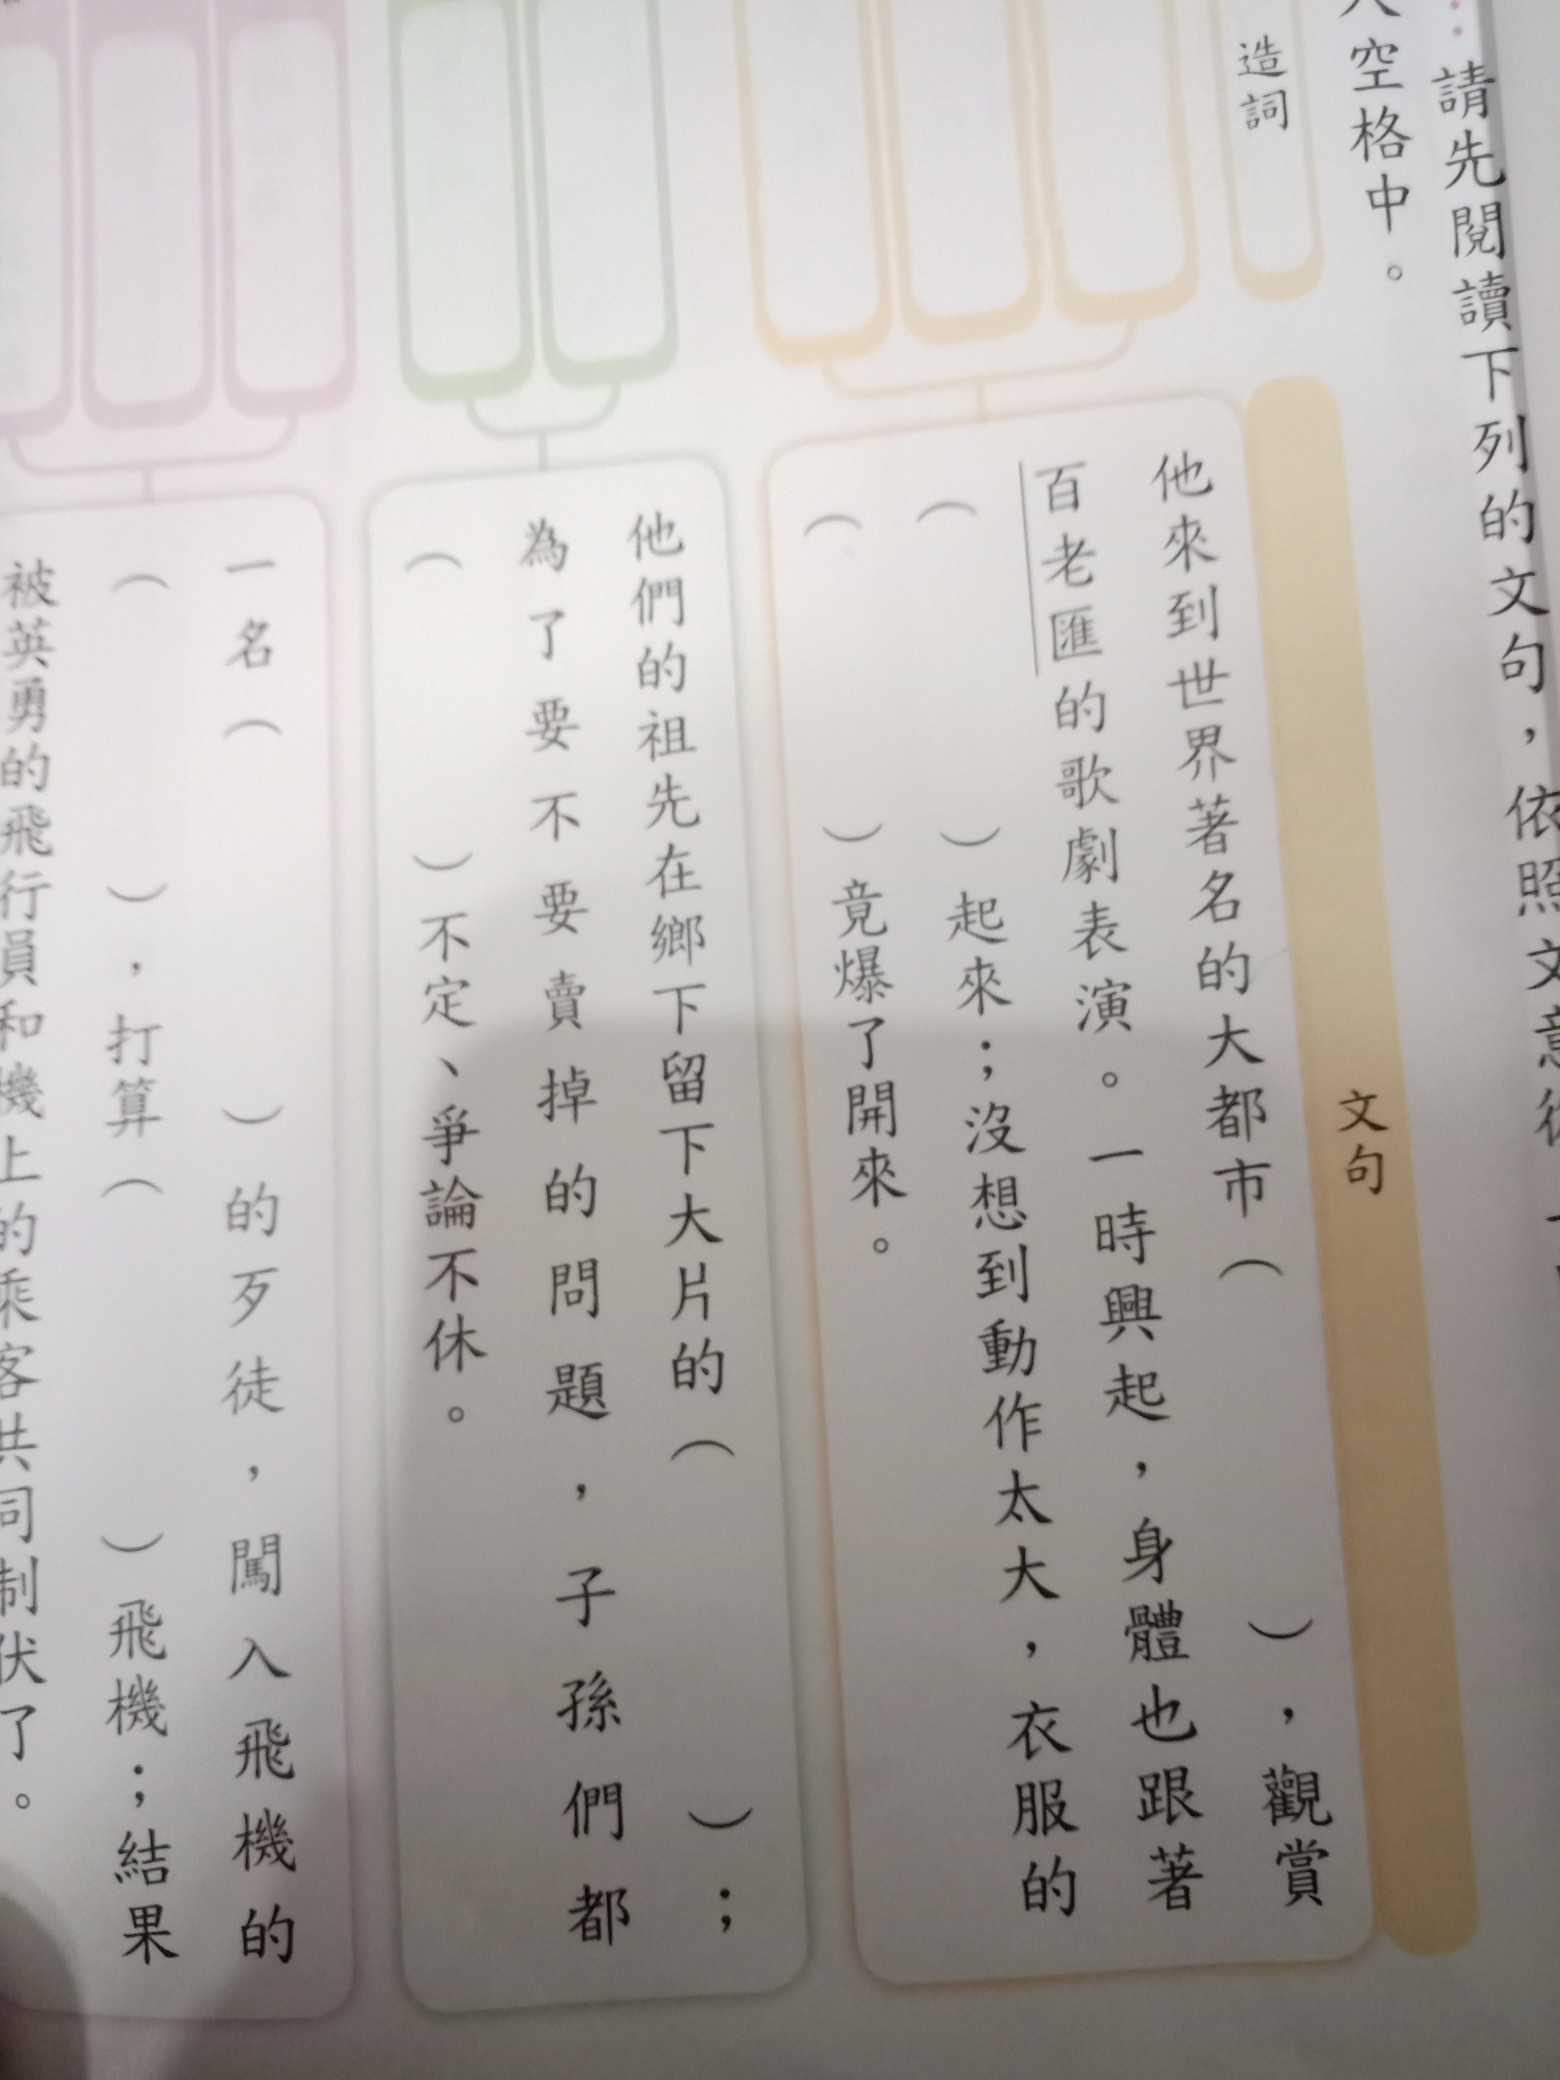 請先閱讀下列的文句，依照文意從
空格中。
造詞
文句
他來到世界著名的大都市（　　　　），觀賞
百老匯的歌劇表演。一時興起，身體也跟著
（　　　　）起來；沒想到動作太大，衣服的
（　　　　）竟爆了開來。
他們的祖先在鄉下留下大片的（　　　　）；
為了要不要賣掉的問題，子孫們都
（　　　　）不定、爭論不休。
一名（　　　　）的歹徒，闖入飛機的
（　　　　），打算（　　　　）飛機；結果
被英勇的飛行員和機上的乘客共同制伏了。